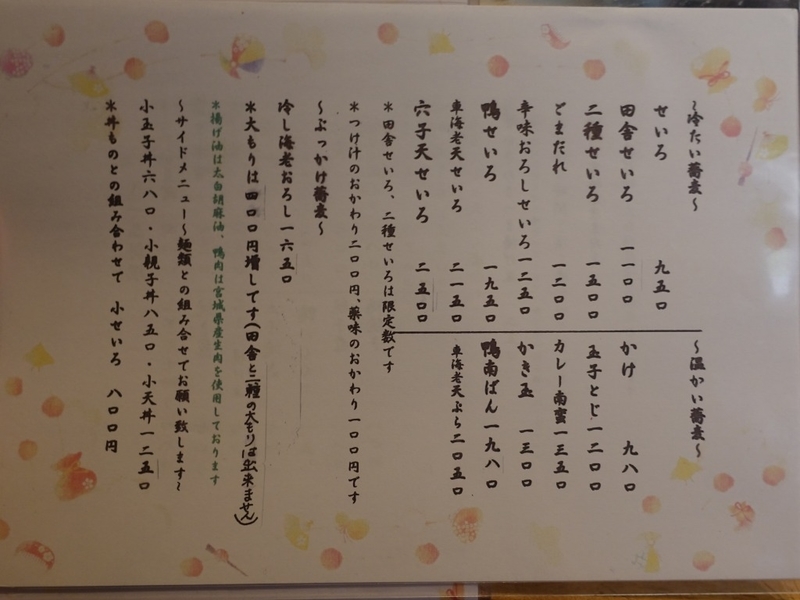 〜冷たい蕎麦〜
せいろ 九五〇
田舎せいろ 一一〇〇
二種せいろ 一五〇〇
ごまだれ 一二〇〇
辛味おろしせいろ 一二五〇
鴨せいろ 一九五〇
車海老天せいろ 二一五〇
穴子天せいろ 二五〇〇
〜温かい蕎麦〜
かけ 九八〇
玉子とじ 一二〇〇
カレー南蛮 一三五〇
かき玉 一三〇〇
鴨南ばん 一九八〇
車海老天ぷら 二〇五〇
＊田舎せいろ、二種せいろは限定数です
＊つけ汁のおかわり二〇〇円、薬味のおかわり一〇〇円です
〜ぶっかけ蕎麦〜
冷し海老おろし 一六五〇
＊大もりは四〇〇円増しです(田舎と二種の大もりは出来ません)
＊揚げ油は太白胡麻油、鴨肉は宮城県産生肉を使用しております
〜サイドメニュー〜麺類との組み合せでお願い致します〜
小玉子丼六八〇・小親子丼八五〇・小天丼一二五〇
＊丼ものとの組み合わせで 小せいろ 八〇〇円